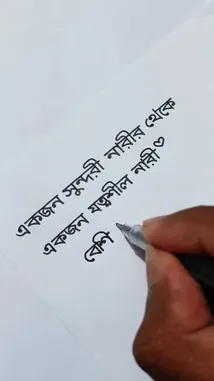 একজন সুন্দরী নারীর থেকে
একজন যত্নশীল নারী♡
বেশি